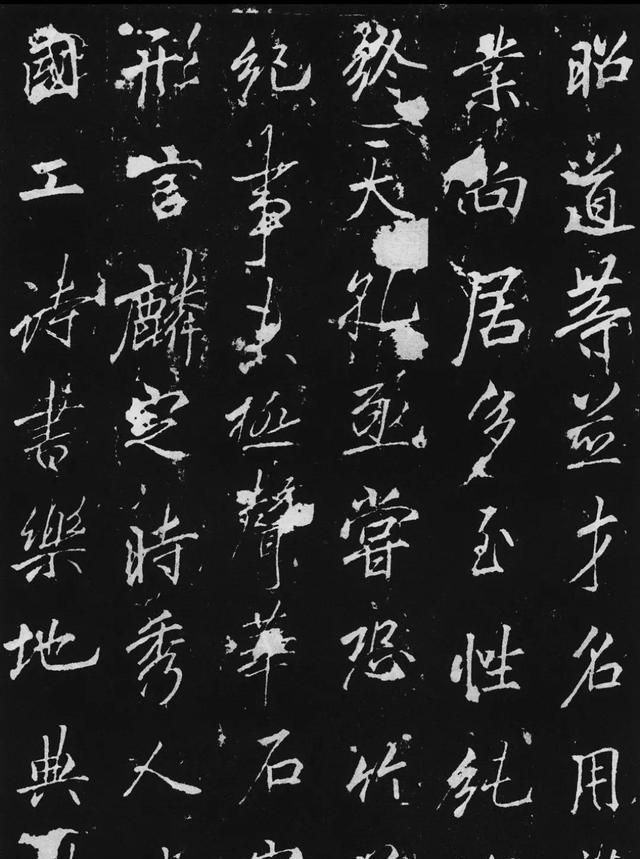 昭道等並才名用
業尚居多至性純
終天孔亟嘗恐竹
紀事未極聲華石
形言麟定時秀人
國工詩書樂地典